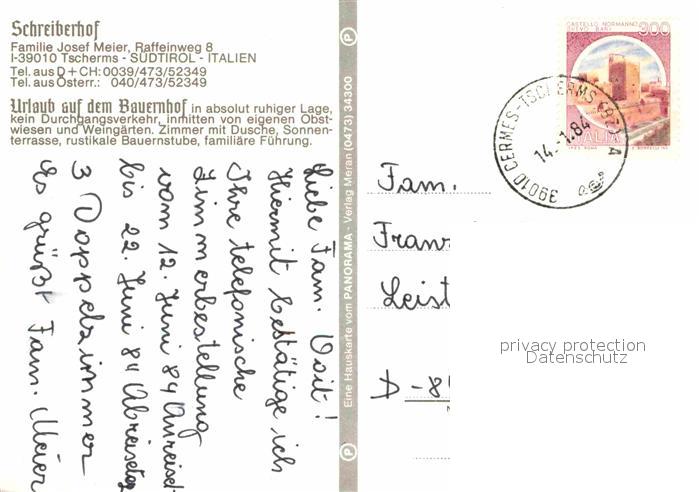 Schreiberhof
Familie Josef Meier, Raffeinweg 8
I-39010 Tscherms - SÜDTIROL - ITALIEN
Tel. aus D + CH: 0039/473/52349
Tel. aus Österr.: 040/473/52349
Urlaub auf dem Bauernhof in absolut ruhiger Lage,
kein Durchgangsverkehr, inmitten von eigenen Obst-
wiesen und Weingärten. Zimmer mit Dusche, Sonnen-
terrasse, rustikale Bauernstube, familiäre Führung.
Liebe Fam. Voit!
Hiermit bestätige ich
Ihre telefonische
Zimmerbestellung
vom 12. Juni 84 Anreiset
bis 22. Juni 84 Abreisetag
3 Doppelzimmer
Es grüßt Fam. Meier
Eine Hauskarte vom PANORAMA - Verlag Meran (0473) 34300
P
P
CASTELLO NORMANNO
SVEVO - BARI
300
ITALIA
39010 CERMES-TSCHERMS (BZ) A
14.-1.84
Fam.
Franz
Leist
D-84
privacy protection
Datenschutz